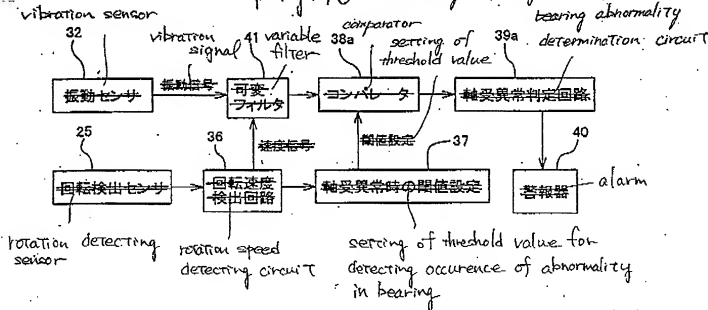 vibration sensor
32
vibration
signal
41 variable
filter
comparator
38a
setting of
threshold value
39a
bearing abnormality
determination circuit
振動センサ
振動信号
可変
フィルタ
コンパレータ
軸受異常判定回路
25
36
速度信号
閾値設定
37
40
回転検出センサ
回転速度
検出回路
軸受異常時の閾値設定
警報器
alarm
rotation detecting
sensor
rotation speed
detecting circuit
setting of threshold value for
detecting occurence of abnormality
in bearing